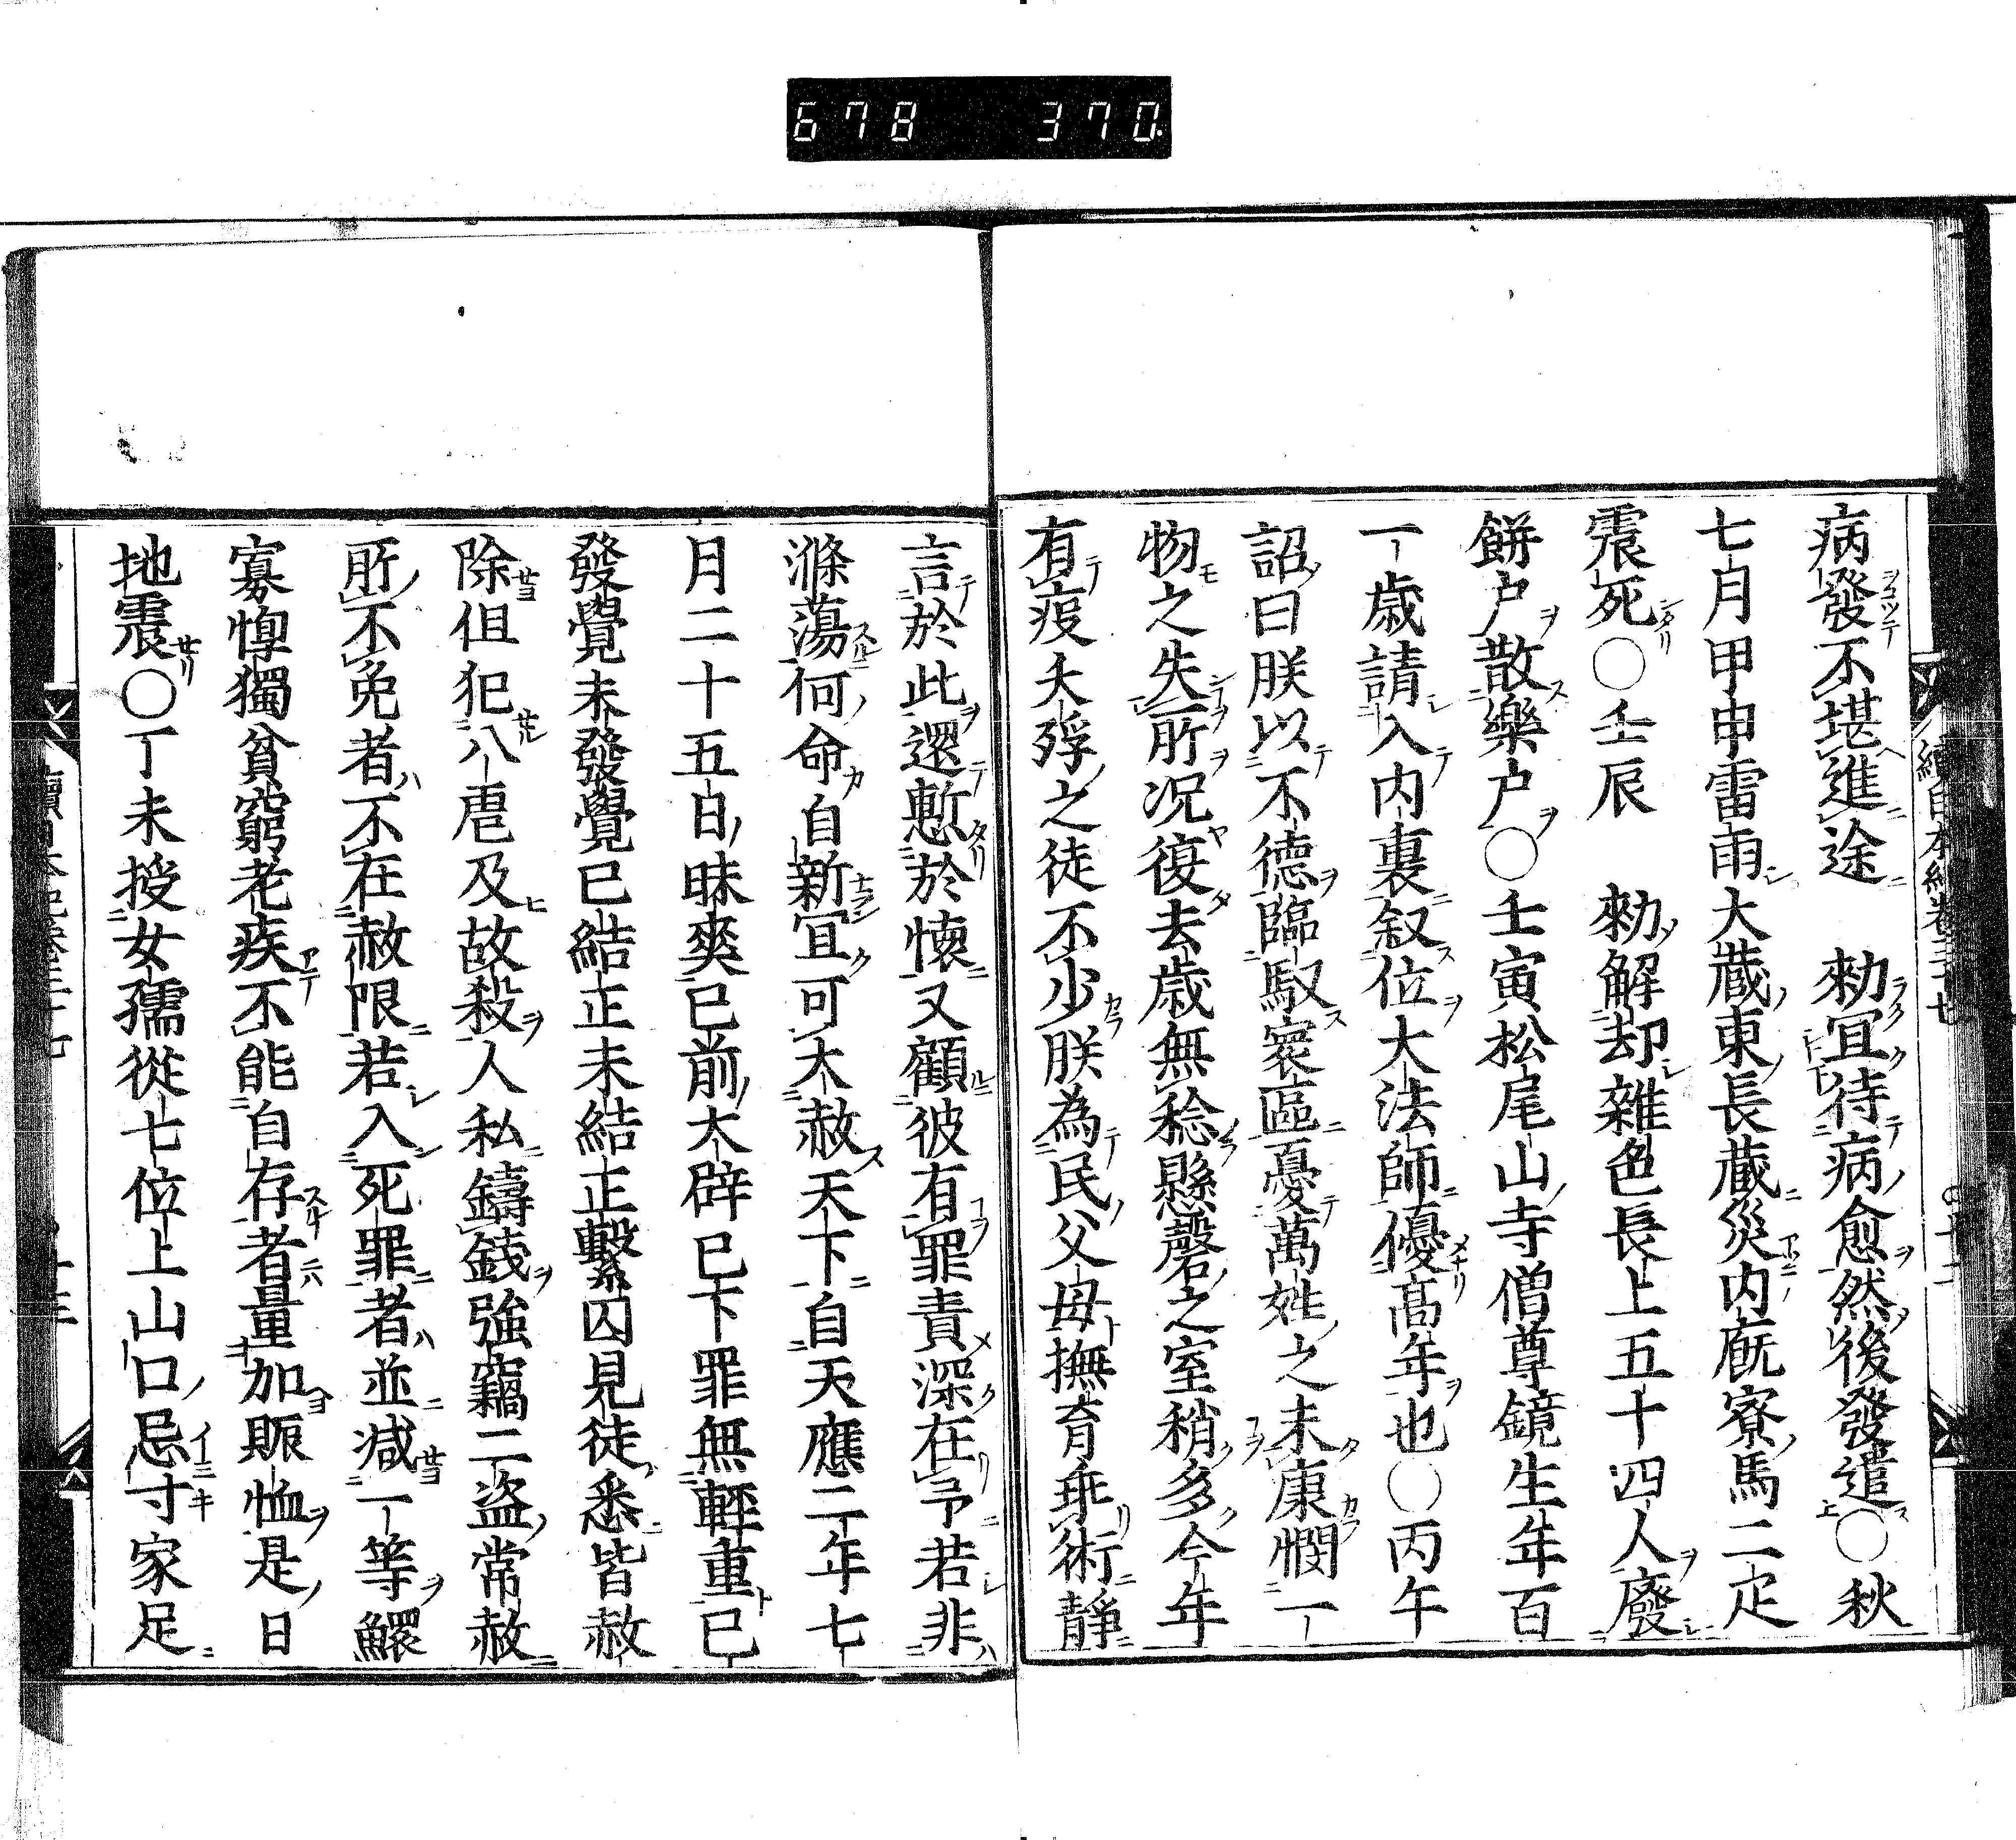 678 370
病發不堪進途　勅宜待病愈然後發遣〇秋
七月甲申雷雨大藏東長藏災内廐寮馬二疋
震死〇壬辰　勅解却雜色長上五十四人廢
餅户散樂户〇壬寅松尾山寺僧尊鏡生年百
一歳請入内裏叙位大法師優髙年也〇丙午
詔曰朕以不德臨馭寰區憂萬姓之未康憫一
物之失所况復去歳無稔懸磬之室稍多今年
有疫夭殍之徒不少朕為民父母撫育乖術靜
言於此還慙於懷又顧彼有罪責深在予若非
滌蕩何命自新宜可大赦天下自天應二年七
月二十五日昧爽已前大辟已下罪無輕重已
發覺未發覺已結正未結正繫囚見徒悉皆赦
除但犯八虐及故殺人私鑄錢強竊二盗常赦
所不免者不在赦限若入死罪者並减一等鰥
寡惸獨貧窮老疾不能自存者量加賑恤是日
地震〇丁未授女孺從七位上山口忌寸家足